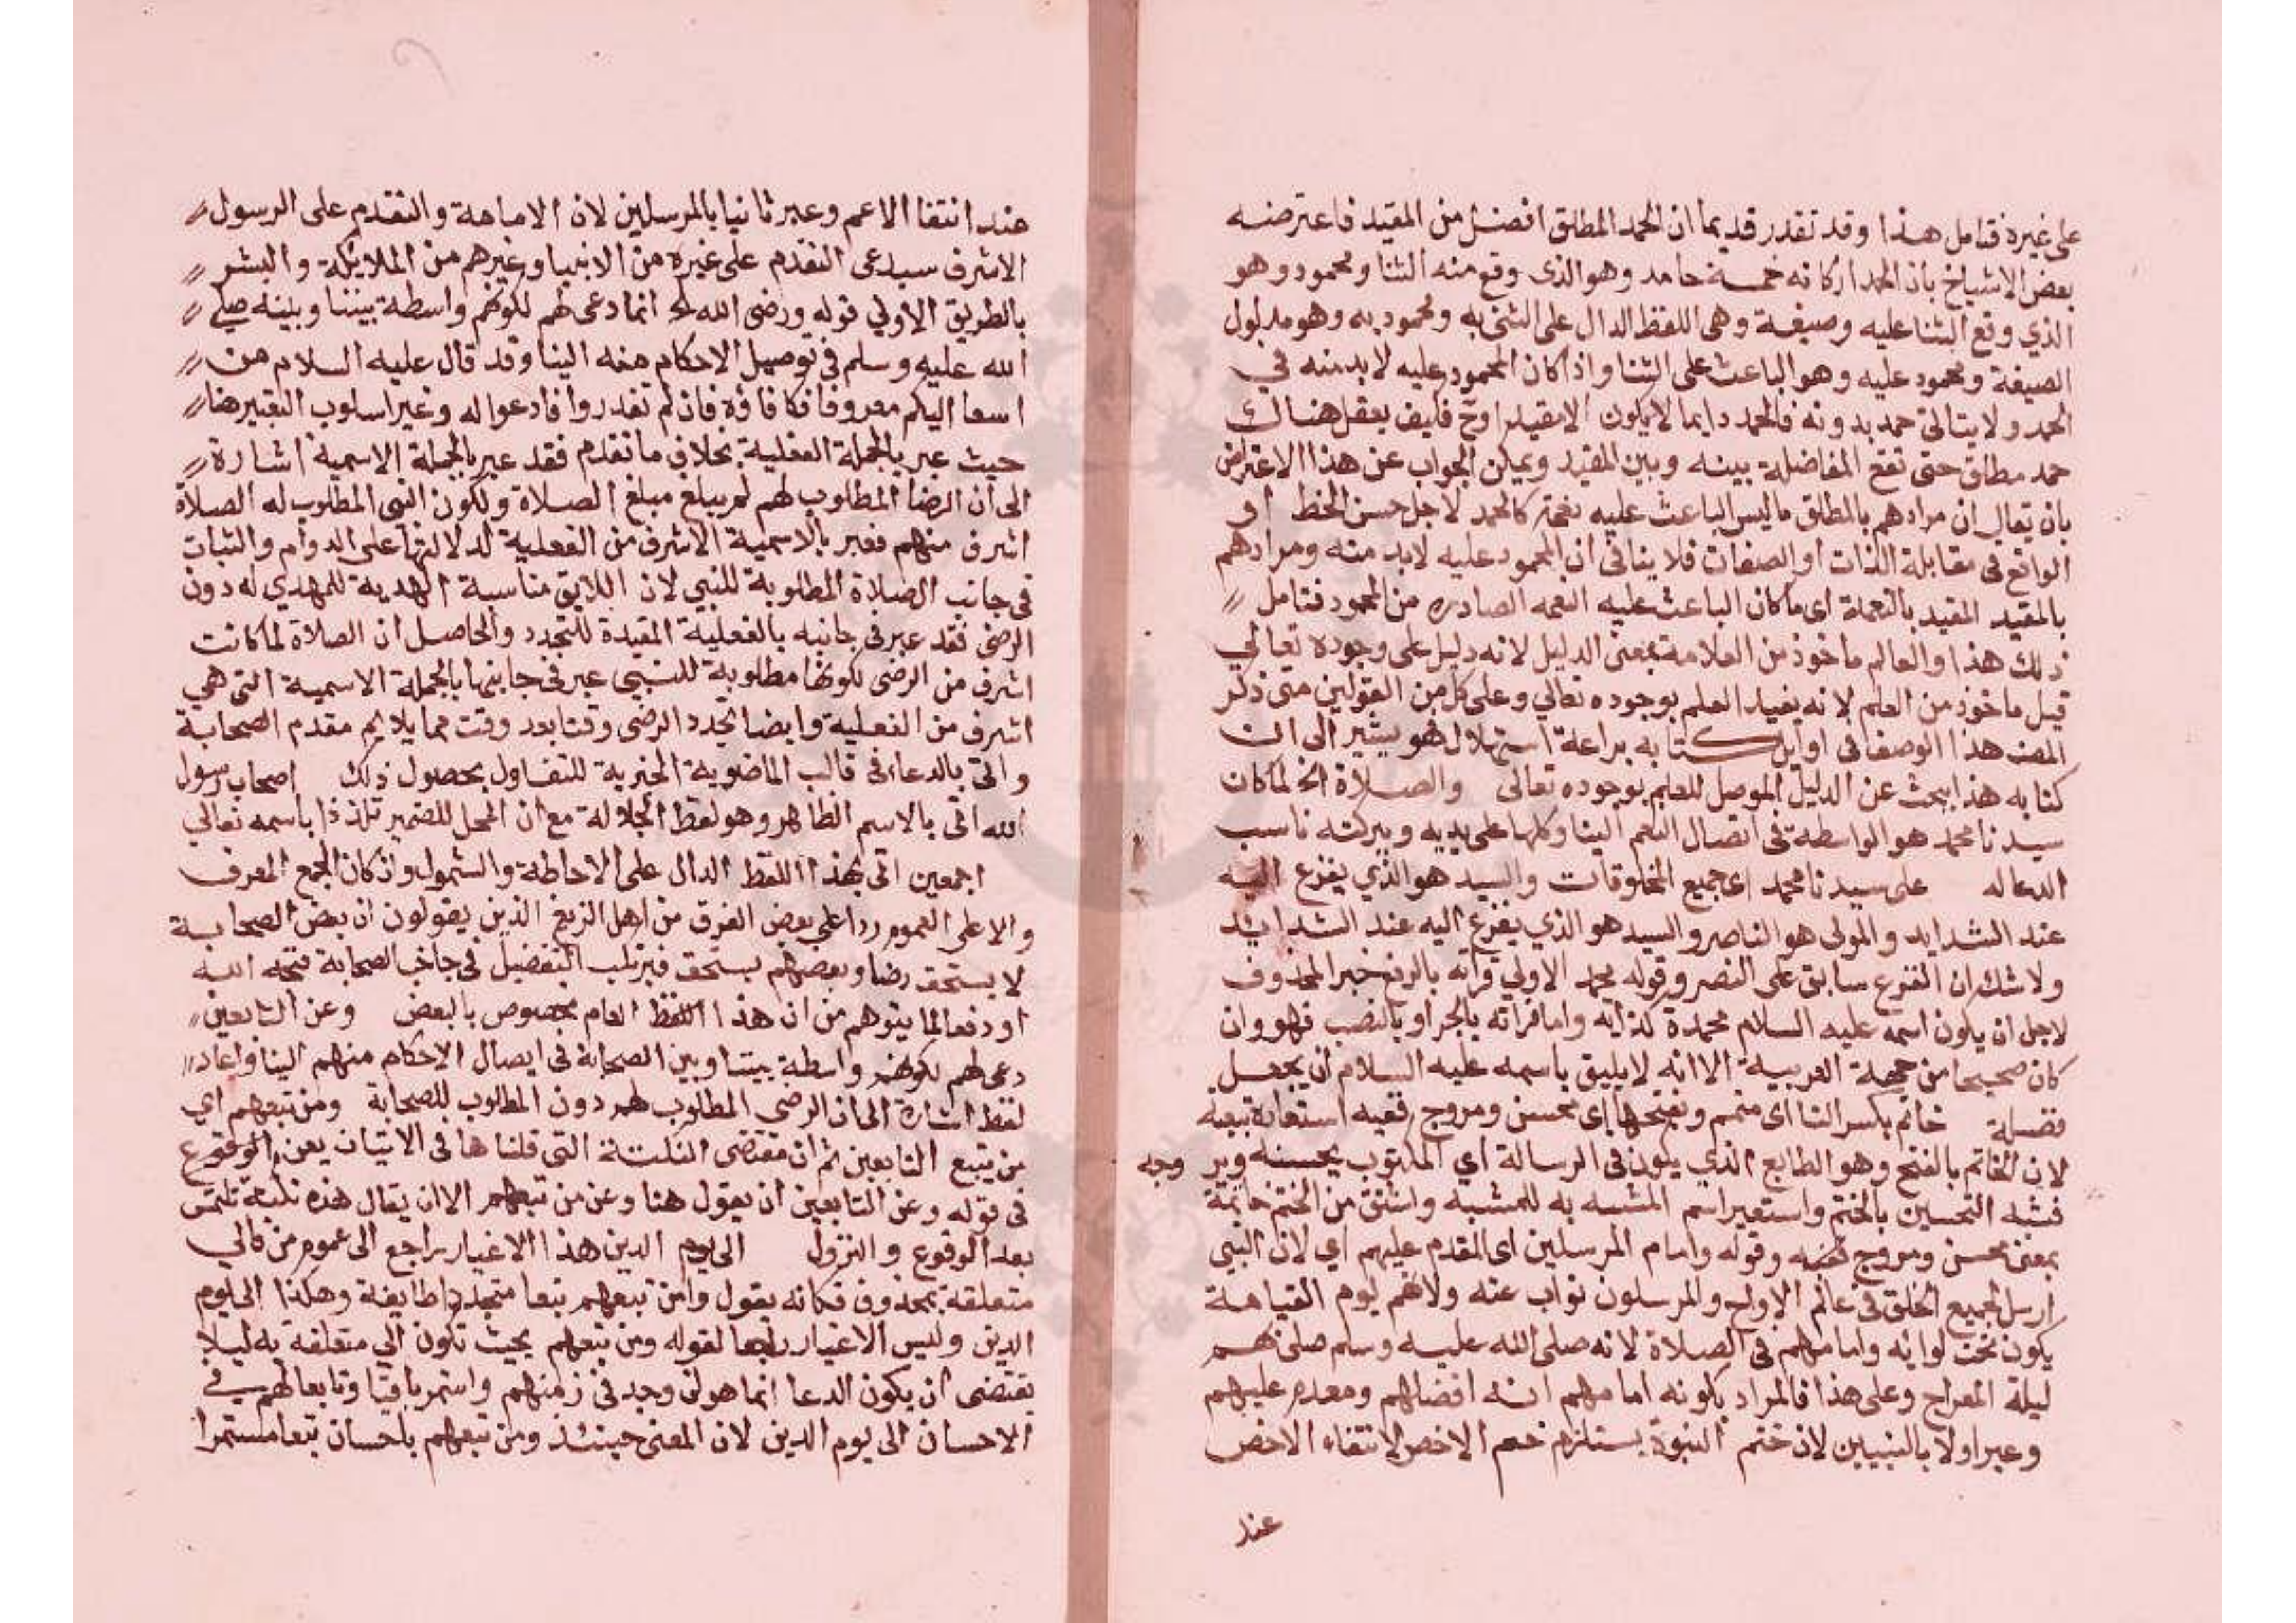 على غيره فتامل هذا وقد تقدر قديما ان الحمد المطلق افضل من المقيد فاعترضه
بعض الاشياخ بان الحمد اركانه خمسة حامد وهو الذى وقع منه الثنا ومحمود وهو
الذي وقع الثنا عليه وصيغة وهى اللفظ الدال على الثنى به ومحمود به وهو مدلول
الصيغة ومحمود عليه وهو الباعث على الثنا واذا كان المحمود عليه لابد منه في
الحمد ولا يتاتى حمد بدونه فالحمد دايما لا يكون الا مقيدا وح فليف يعقل هناك
حمد مطلق حتى تقع المفاضلة بينه وبين المقيد ويمكن الجواب عن هذا الاعتراض
بان يقال ان مرادهم بالمطلق ماليس الباعث عليه نعمة كالحمد لاجل حسن الخط او
الواقع فى مقابلة الذات او الصفات فلا ينافى ان المحمود عليه لابد منه ومرادهم
بالمقيد المقيد بالنعمة اى ما كان الباعث عليه النعمه الصادره من المحمود فتامل
ذلك هذا والعالم ماخوذ من العلامة بمعنى الدليل لانه دليل على وجوده تعالي
قيل ماخوذ من العلم لانه يفيد العلم بوجوده تعالي وعلى كل من القولين متى ذكر
المصنف هذا الوصف فى اوايل كتابه براعة استهلال هو يشير الى ان
كتابه هذا يبحث عن الدليل الموصل للعلم بوجوده تعالى والصلاة الخ لما كان
سيدنا محمد هو الواسطة فى اتصال النعم الينا وكلها على يديه وببركته ناسب
الدعا له على سيدنا محمد اى جميع المخلوقات والسيد هو الذي يفزع اليه
عند الشدايد والمولى هو الناصر والسيد هو الذي يفزع اليه عند الشدايد
ولا شك ان الفزع سابق على النصر وقوله محمد الاولي قراته بالرفع خبر المحدوف
لاجل ان يكون اسمه عليه السلام محمدة لذاته واما قراته بالجر او بالنصب فهو وان
كان صحيحا من جهة العربية الا انه لا يليق باسمه عليه السلام ان يجعل
فضلة خاتم بكسر التا اى متمم وبفتحها اى محسن ومروج ففيه استعارة تبعية
لان الخاتم بالفتح وهو الطابع الذي يكون فى الرسالة اي المكتوب يحسنه وير وجه
فشبه التحسين بالختم واستعير اسم المشبه به للمشبه واشتق من الختم خاتمة
بمعنى محسن ومروج وقوله وامام المرسلين اى المقدم عليهم اي لان النبي
ارسل لجميع الخلق فى عالم الارواح والمرسلون نواب عنه ولانهم يوم القيامة
يكون تحت لوايه وامامهم فى الصلاة لانه صلى الله عليه وسلم صلى بهم
ليلة المعراج وعلى هذا فالمراد بكونه امامهم انه افضلهم ومقدم عليهم
وعبر اولا بالنبيين لان ختم النبوة يستلزم ختم الاخص لانتفاء الاخص
عند
عند انتفا الاعم وعبر ثانيا بالمرسلين لان الامامة والتقدم على الرسول
الاشرف سيدعى التقدم على غيره من الانبيا وغيرهم من الملايكة والبشر
بالطريق الاولي قوله ورضى الله الخ انما دعى لهم لكونهم واسطة بيننا وبينه صلى
الله عليه وسلم فى توصيل الاحكام منه الينا وقد قال عليه السلام من
اسعا اليكم معروفا فكافاؤه فان لم تقدروا فادعوا له وغير اسلوب التعبير هنا
حيث عبر بالجملة الفعلية بخلاف ما تقدم فقد عبر بالجملة الاسمية اشارة
الى ان الرضا المطلوب لهم لم يبلغ مبلغ الصلاة ولكون النبى المطلوب له الصلاة
اشرف منهم فعبر بالاسمية الاشرف من الفعلية لدلالتها على الدوام والثبات
فى جانب الصلاة المطلوبة للنبي لان اللايق مناسبة الهدية للمهدي له دون
الرضى فقد عبر فى جانبه بالفعلية المقيدة للتجدد والحاصل ان الصلاة لما كانت
اشرف من الرضى لكونها مطلوبة للنبى عبر فى جانبها بالجملة الاسمية التى هي
اشرف من الفعلية وايضا تجدد الرضى وقتا بعد وقت مما يلايم مقدم الصحابة
واتى بالدعاء فى قالب الماضوية الخبرية للتفاول بحصول ذلك اصحاب رسول
الله اتى بالاسم الظاهر وهو لفظ الجلالة مع ان المحل للضمير تلذذا باسمه تعالي
اجمعين اتى بهذا اللفظ الدال على الاحاطة والشمول وان كان الجمع المعرف
والا على العموم ردا على بعض الفرق من اهل الزيغ الذين يقولون ان بعض الصحابة
لا يستحق رضا وبعضهم يستحق فيرتكب التفضيل فى جانب الصحابة قبحه الله
او دفعا لما يتوهم من ان هذا اللفظ العام مخصوص بالبعض وعن التابعين
دعى لهم لكونهم واسطة بيننا وبين الصحابة فى ايصال الاحكام منهم الينا واعاد
لفظ اشارة الى ان الرضى المطلوب لهم دون المطلوب للصحابة ومن تبعهم اي
من يتبع التابعين ثم ان مقتضى النكتة التى قلناها فى الاتيان بعن الوقوع
فى قوله وعن التابعين ان يقول هنا وعن من تبعهم الا ان يقال هذه نكتة تلتمس
بعد الوقوع والنزول الى يوم الدين هذا الاغيار راجع الى عموم من فالي
متعلقة بمحذوف فكانه يقول وامن تبعهم تبعا متجددا طايفة وهكذا الى يوم
الدين وليس الاغيار راجعا لقوله ومن تبعهم بحيث تكون الى متعلقة به ليلا
تقتضى ان يكون الدعا انما هو لمن وجد فى زمنهم واستمر باقيا وتابعا لهم في
الاحسان الى يوم الدين لان المعنى حينئذ ومن تبعهم باحسان تبعا مستمرا